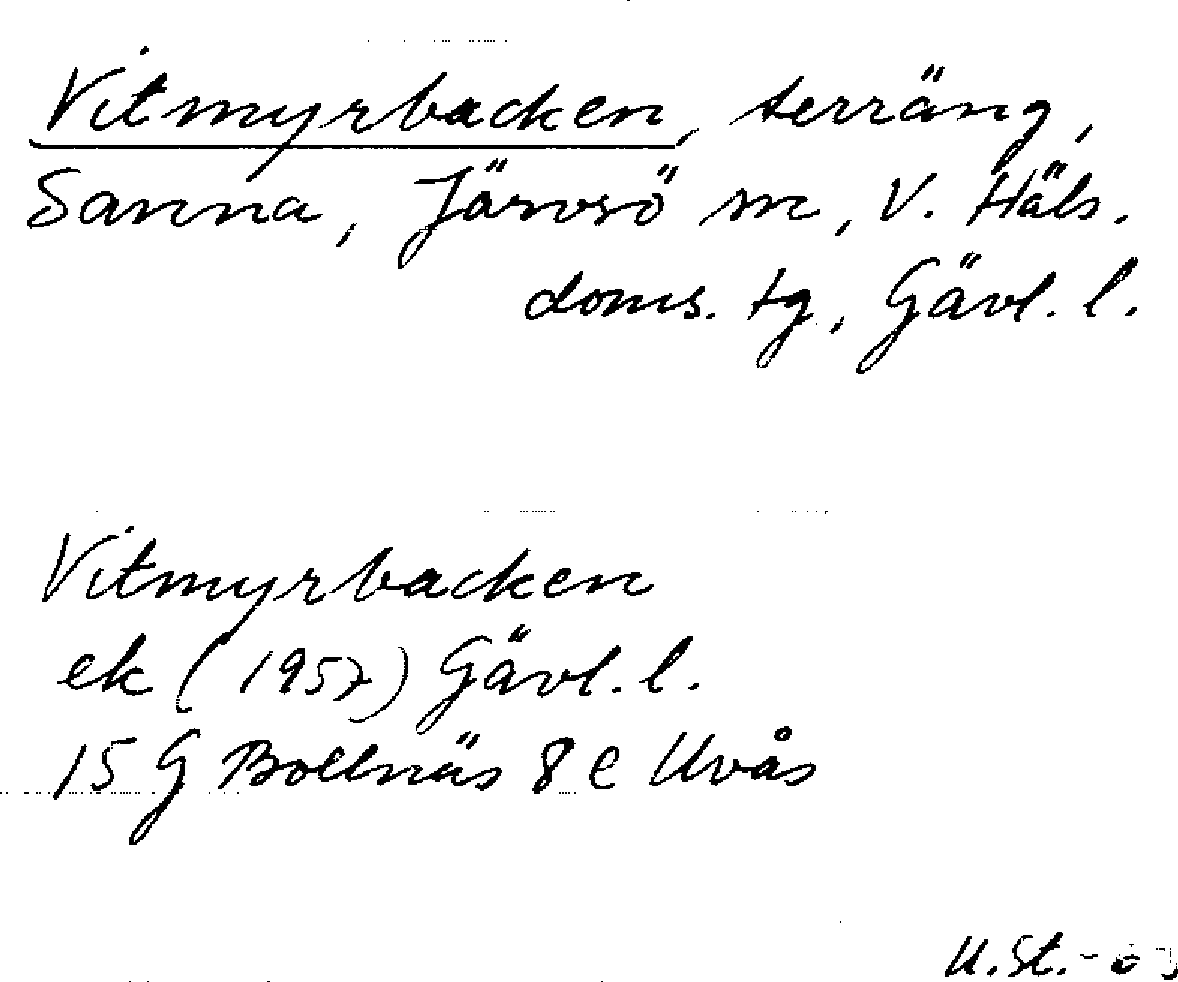 Vitmyrbacken, terräng,
Sanna, Järvsö sn, V. Häls.
doms. tg, Gävl. l.
Vitmyrbacken
ek (1957) Gävl. l.
15 G Bollnäs 8 e Uvås
U.St.-